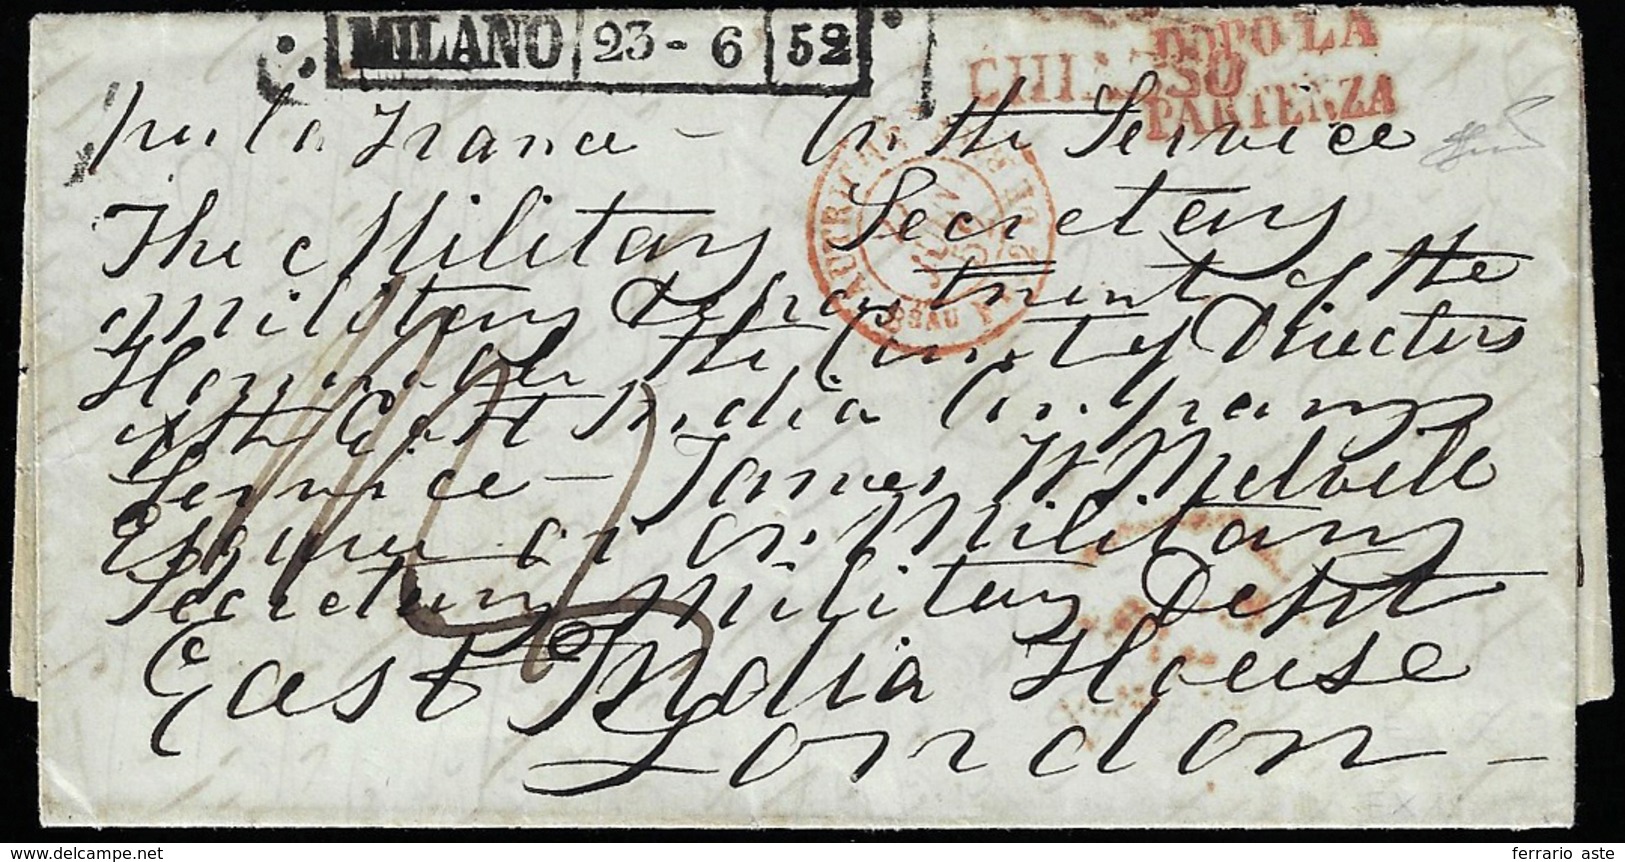 MILANO 23-6 52
DOPO LA
CHIASSO
PARTENZA
per la France - On the Service
The Military Secretary
Military Department of the
Honorable the Court of Directors
of the East India Company
Service - James Melvill
Esquire or on Military
Secretary Military Dept
East India House
London -
ferrario aste